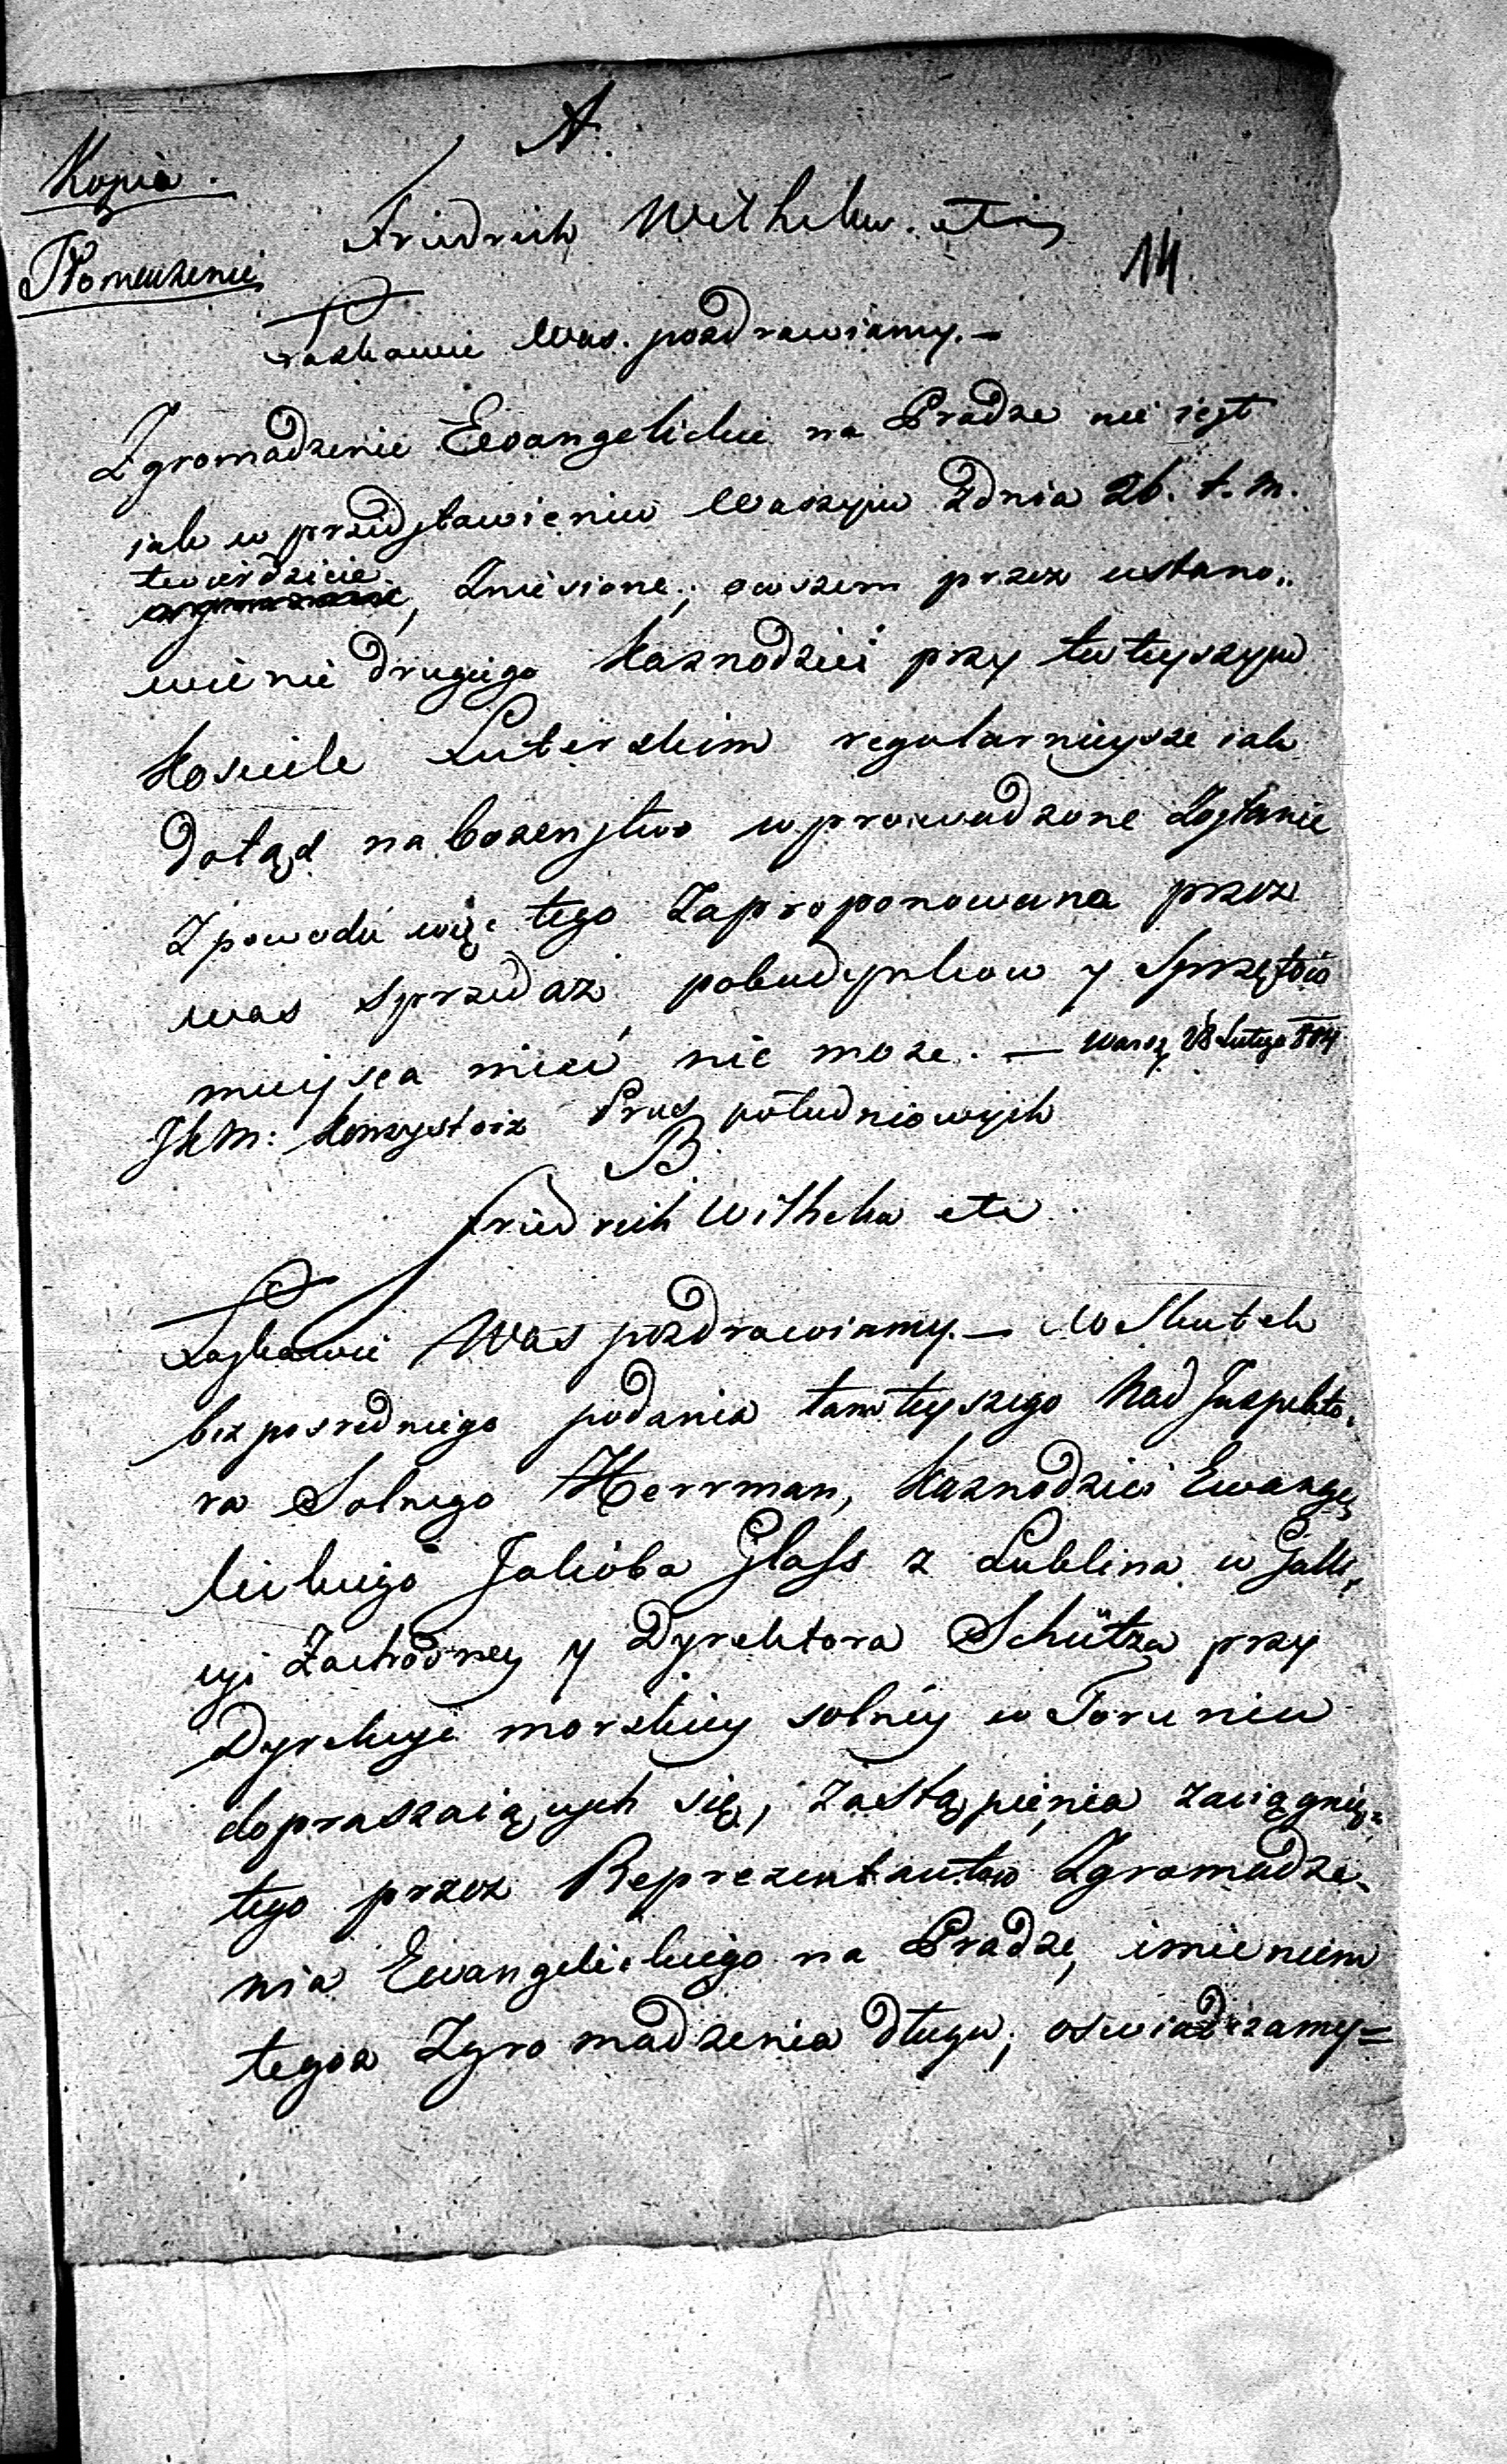 A.
Kopia.
Friedrich Wilhelm. etc
14.
Tłomaczenie
Łaskawie Was. pozdrawiamy. –
Zgromadzenie Ewangelickie na Pradze nie iest
iak w przedstawieniu Waszym z dnia 26. t. m.
twierdzicie,
Zniesione; owszem przez ustano„
wienie drugiego kaznodziei przy tuteyszym
kosciele Luterskim regularnieysze iak
dotąd nabozenstwo wprowadzone Zostanie
Z powodu więc tego Zaproponowana przez
was sprzedaż pobudynkow y Sprzętow
mieysca mieć nie moze. — Warsz. 28 Lutego 804
JKM: Konsystorz Prus południowych
B.
Friedrich Wilhelm etc
Łaskawie Was pozdrawiamy. — W Skutek
bezposredniego podania tamteyszego Nad Inspekto„
ra Solnego Herrman, kaznodziei Ewange„
lickiego Jakóba Glass z Lublina w Gali„
cyi Zachodney y Dyrektora Schütza przy
Dyrekcyi morskiey solney w Toruniu
dopraszaiących się, zastąpienia zaciągnię„
tego przez Reprezentantow Zgromadze„
nia Ewangelickiego na Pradze, imieniem
tegoz Zgromadzenia długu; oswiadczamy=